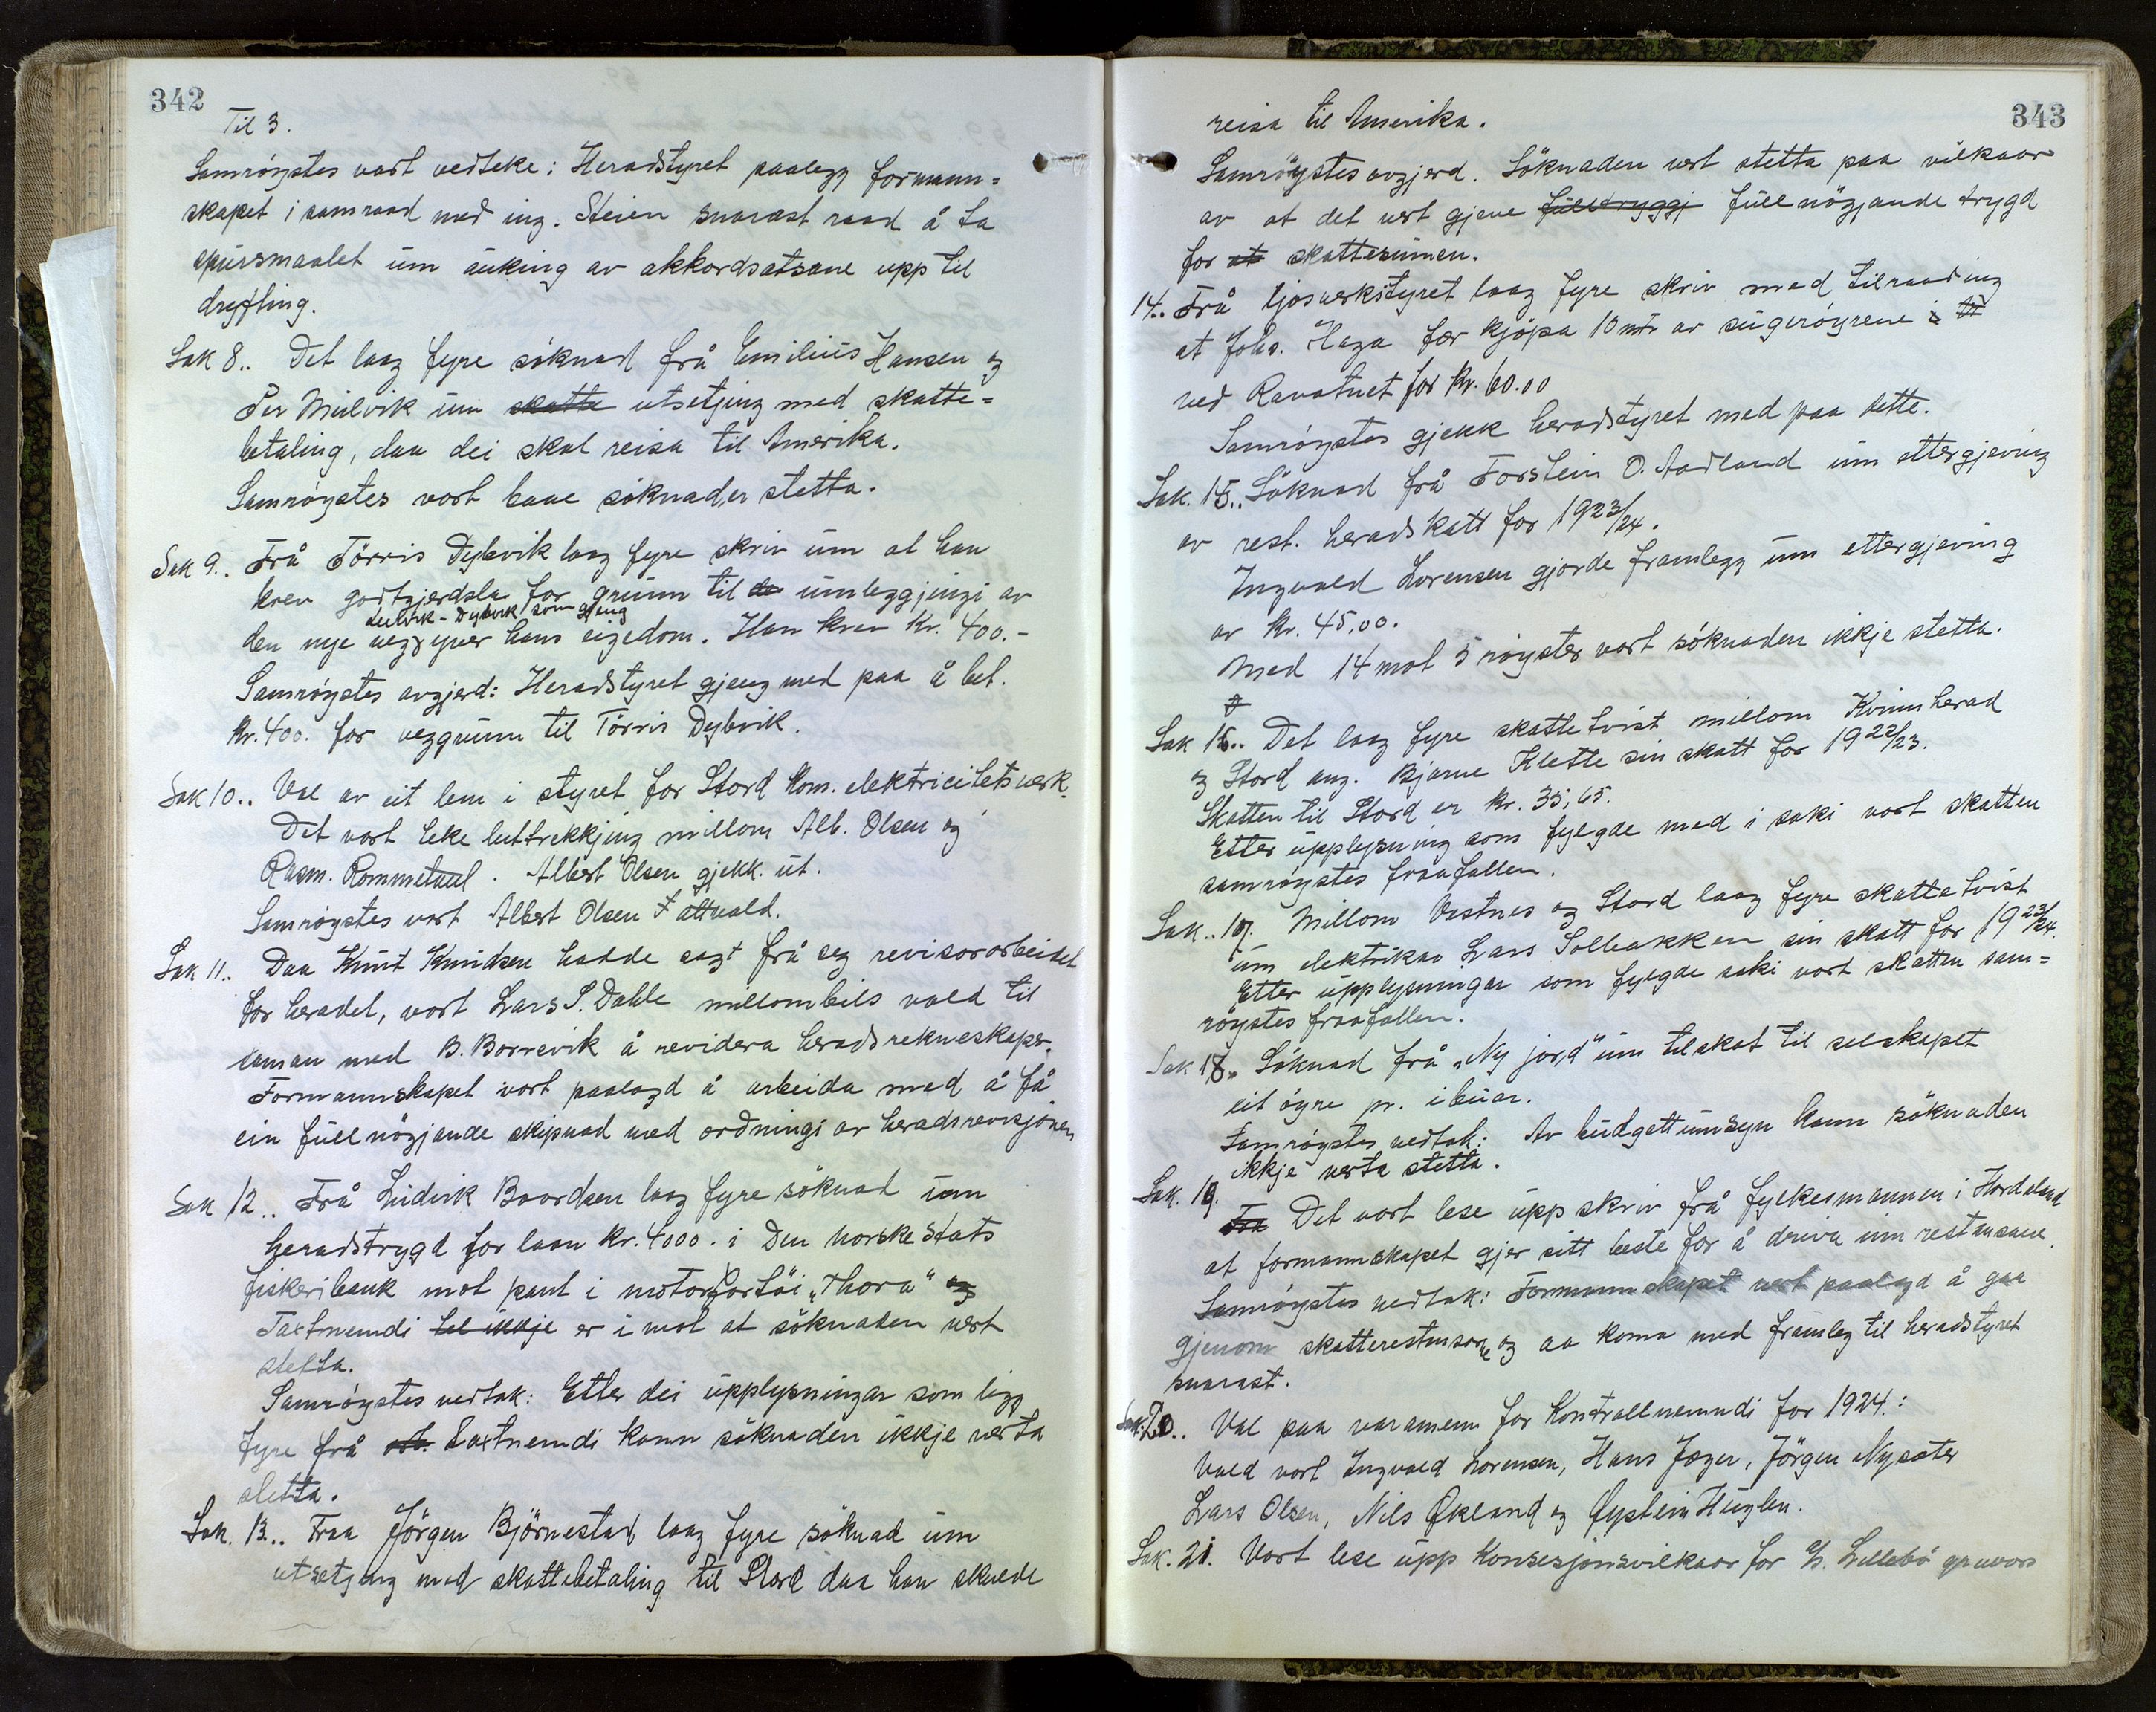 342
Til 3.
Samröystes vart vedteke: Heradstyret paalegg formann=
skapet i samraad med ing. Steien snarast raad å ta
spursmaalet um auking av akkordsatsane upp til
dryfting.
Sak 8.. Det laag fyre söknad frå Emilius Hansen og
Per Mulvik um skatte utsetjing med skatte=
betaling, daa dei skal reisa til Amerika.
Samröystes vort baae söknader stetta.
Sak 9.. Frå Törris Dybvik laag fyre skriv um at han
krev godtgjerdsla for grunn til de umleggjingi av
Leirvik - Dybvik som gjeng
den nye veg yver hans eigedom. Han krev Kr. 400.-
Samröystes avgjerd: Heradstyret gjeng med paa å bet.
Kr. 400. for veggrunn til Törris Dybvik.
Sak 10.. Val av eit lem i styret for Stord Kom. elektricitetsverk.
Det vort teke luttrekkjing millom Alb. Olsen og
Rasm. Rommetveit. Albert Olsen gjekk ut.
Samröystes vart Albert Olsen attvald.
Sak 11.. Daa Knut Knudsen hadde sagt frå seg revisorarbeidet
for heradet, vort Lars S. Dahle millombils vald til
saman med B. Borrevik å revidera heradsrekneskaper.
Formannskapet vort paalagd å arbeida med å få
ein fullnögjande skipnad med ordningi av heradsrevisjonen
Sak 12.. Frå Ludvik Baardsen laag fyre söknad um
heradstrygd for laan Kr. 4000. i Den norske Stats
fiskeribank mot pant i motorfartöi "Thora" og
Taxtnemndi tel ikkje er i mot at söknaden vert
stetta.
Samröystes vedtak: Etter dei upplysningar som ligg
fyre frå Taxtnemdi kann söknaden ikkje verta
stetta.
Sak. 13.. Fraa Jörgen Björnestad laag fyre söknad um
utsetjing med skattebetaling til Stord daa han skulde
343
reisa til Amerika.
Samröystes avgjerd. Söknaden vert stetta paa vilkaar
av at det vert gjeve fulltryggj fullnögjande trygd
for at skattesumen.
14.. Frå ljosverkstyret laag fyre skriv med tilraading
at Johs. Haga fær kjöpa 10 mtr av sugeröyrene i
ved Ravatnet for Kr. 60.00
Samröystes gjekk heradstyret med paa dette.
Sak. 15.. Söknad frå Torstein O. Aadland um ettergjeving
av rest. heradskatt for 1923/24.
Ingvald Lorensen gjorde framlegg um ettergjeving
av Kr. 45.00.
Med 14 mot 5 röyster vart söknaden ikkje stetta.
Sak 16.. Det laag fyre skattetvist millom Kvinnherad
og Stord ang. Bjarne Klette sin skatt for 1922/23.
Skatten til Stord er Kr. 35,65.
Etter upplysning som fylgde med i saki vort skatten
samröystes fraafallen.
Sak.. 17. Millom Vestnes og Stord laag fyre skattetvist
um elektrikar Lars Solbakken sin skatt for 1923/24.
Etter upplysningar som fylgde saki vort skatten sam=
röystes fraafallen.
Sak 18.. Söknad frå "Ny jord" um tilskot til selskapet
eit öyre pr. ibuar.
Samröystes vedtak: Av budgettumsyn kann söknaden
ikkje verta stetta.
Sak. 19.
Fra Det vort lese upp skriv frå fylkesmannen i Hordaland
at formannskapet gjer sitt beste for å driva inn restansane.
Samröystes vedtak: Formannskapet vert paalagd å gaa
gjenom skatterestansane og aa koma med framleg til heradstyret
snarast.
Sak. 20.. Val paa varamenn for Kontrollnemndi for 1924.:
Vald vort Ingvald Lorensen, Hans Jæger, Jörgen Nysæter
Lars Olsen, Nils Økland og Øystein Huglen.
Sak. 21. Vart lese upp Konsesjonsvilkaar for A/S. Lillebö gruvor